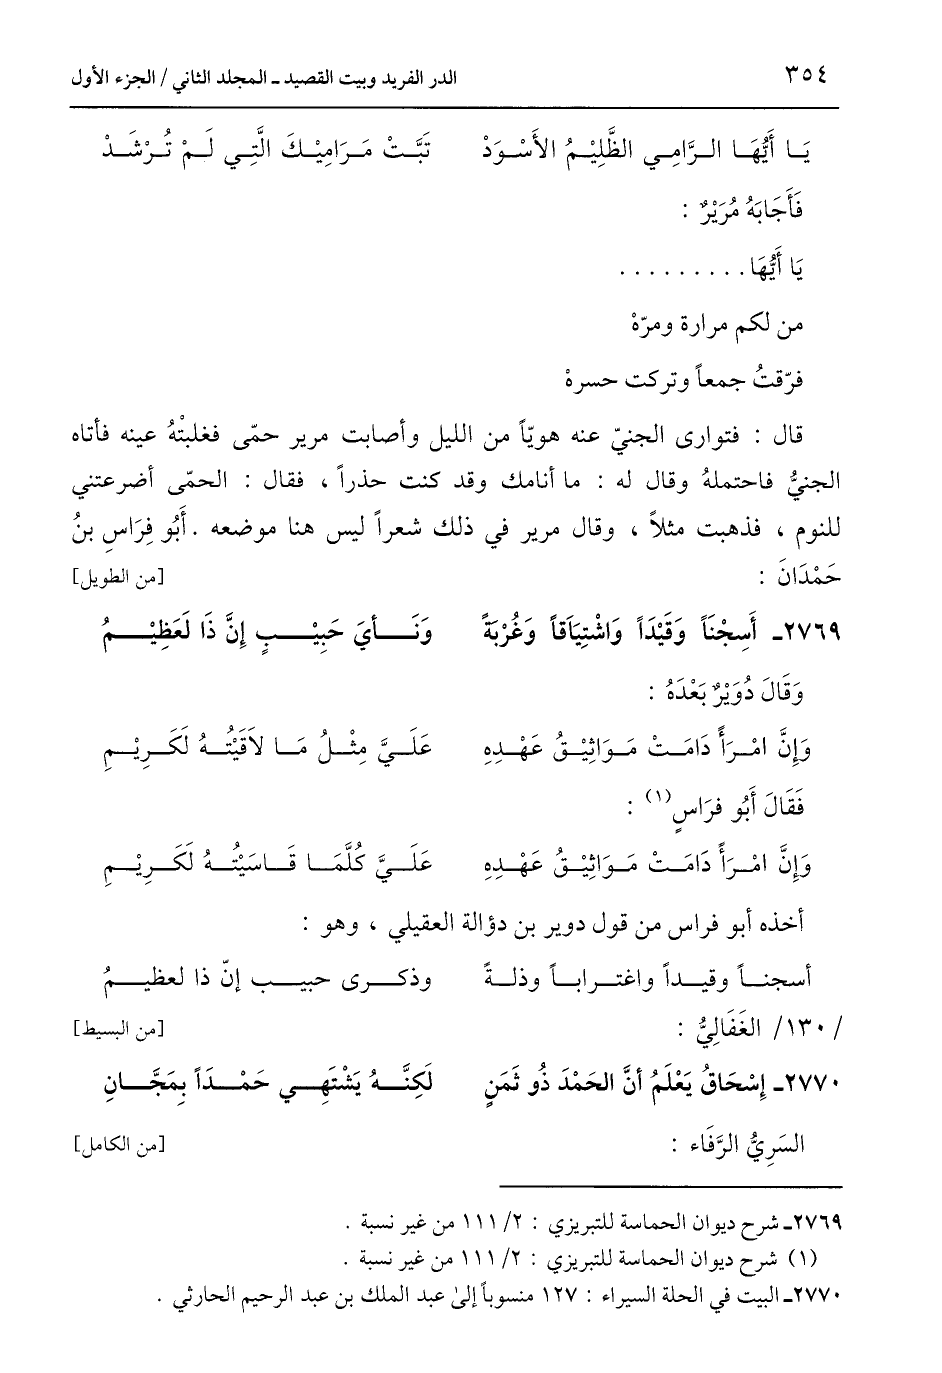 ٣٥٤ الدر الفريد وبيت القصيد ـ المجلد الثاني / الجزء الأول
يَـا أَيُّهَـا الـرَّامِـي الظَّلِيْـمُ الأَسْـوَدْ تَبَّـتْ مَـرَامِيْـكَ الَّتِـي لَـمْ تُـرْشَـدْ
فَأَجَابَهُ مُرَيْرٌ :
يَا أَيُّهَا . . . . . . . . .
من لكم مرارة ومرّهْ
فرّقتُ جمعاً وتركت حسرهْ
قال : فتوارى الجنيّ عنه هويّاً من الليل وأصابت مرير حمّى فغلبتْهُ عينه فأتاه
الجنيُّ فاحتملهُ وقال له : ما أنامك وقد كنت حذراً ، فقال : الحمّى أضرعتني
للنوم ، فذهبت مثلاً ، وقال مرير في ذلك شعراً ليس هنا موضعه . أَبُو فِرَاسِ بنُ
حَمْدَانَ : [من الطويل]
٢٧٦٩ـ أَسِجْنَاً وَقَيْدَاً وَاشْتِيَاقاً وَغُرْبَةً وَنَـــأيَ حَبِيْــــبٍ إِنَّ ذَا لَعَظِيْــــمُ
وَقَالَ دُوَيْرٌ بَعْدَهُ :
وَإِنَّ امْـرَأً دَامَـتْ مَـوَاثِيْـقُ عَهْـدِهِ عَلَـيَّ مِثْـلُ مَـا لاَقَيْتُـهُ لَكَـرِيْـمِ
فَقَالَ أَبُو فرَاسٍ(١) :
وَإِنَّ امْـرَأً دَامَـتْ مَـوَاثِيْـقُ عَهْـدِهِ عَلَـيَّ كُلَّمَـا قَـاسَيْتُـهُ لَكَـرِيْـمِ
أخذه أبو فراس من قول دوير بن دؤالة العقيلي ، وهو :
أسجنـاً وقيـداً واغتـرابـاً وذلـةً وذكـرى حبيـب إنّ ذا لعظيـمُ
/ ١٣٠/ الغَفَالِيُّ : [من البسيط]
٢٧٧٠ـ إِسْحَاقُ يَعْلَمُ أنَّ الحَمْدَ ذُو ثَمَنٍ لَكِنَّـهُ يَشْتَهِـي حَمْـدَاً بِمَجَّـانِ
السَرِيُّ الرَّفَاء : [من الكامل]
٢٧٦٩ـ شرح ديوان الحماسة للتبريزي : ٢/ ١١١ من غير نسبة .
(١) شرح ديوان الحماسة للتبريزي : ٢/ ١١١ من غير نسبة .
٢٧٧٠ـ البيت في الحلة السيراء : ١٢٧ منسوباً إلىٰ عبد الملك بن عبد الرحيم الحارثي .